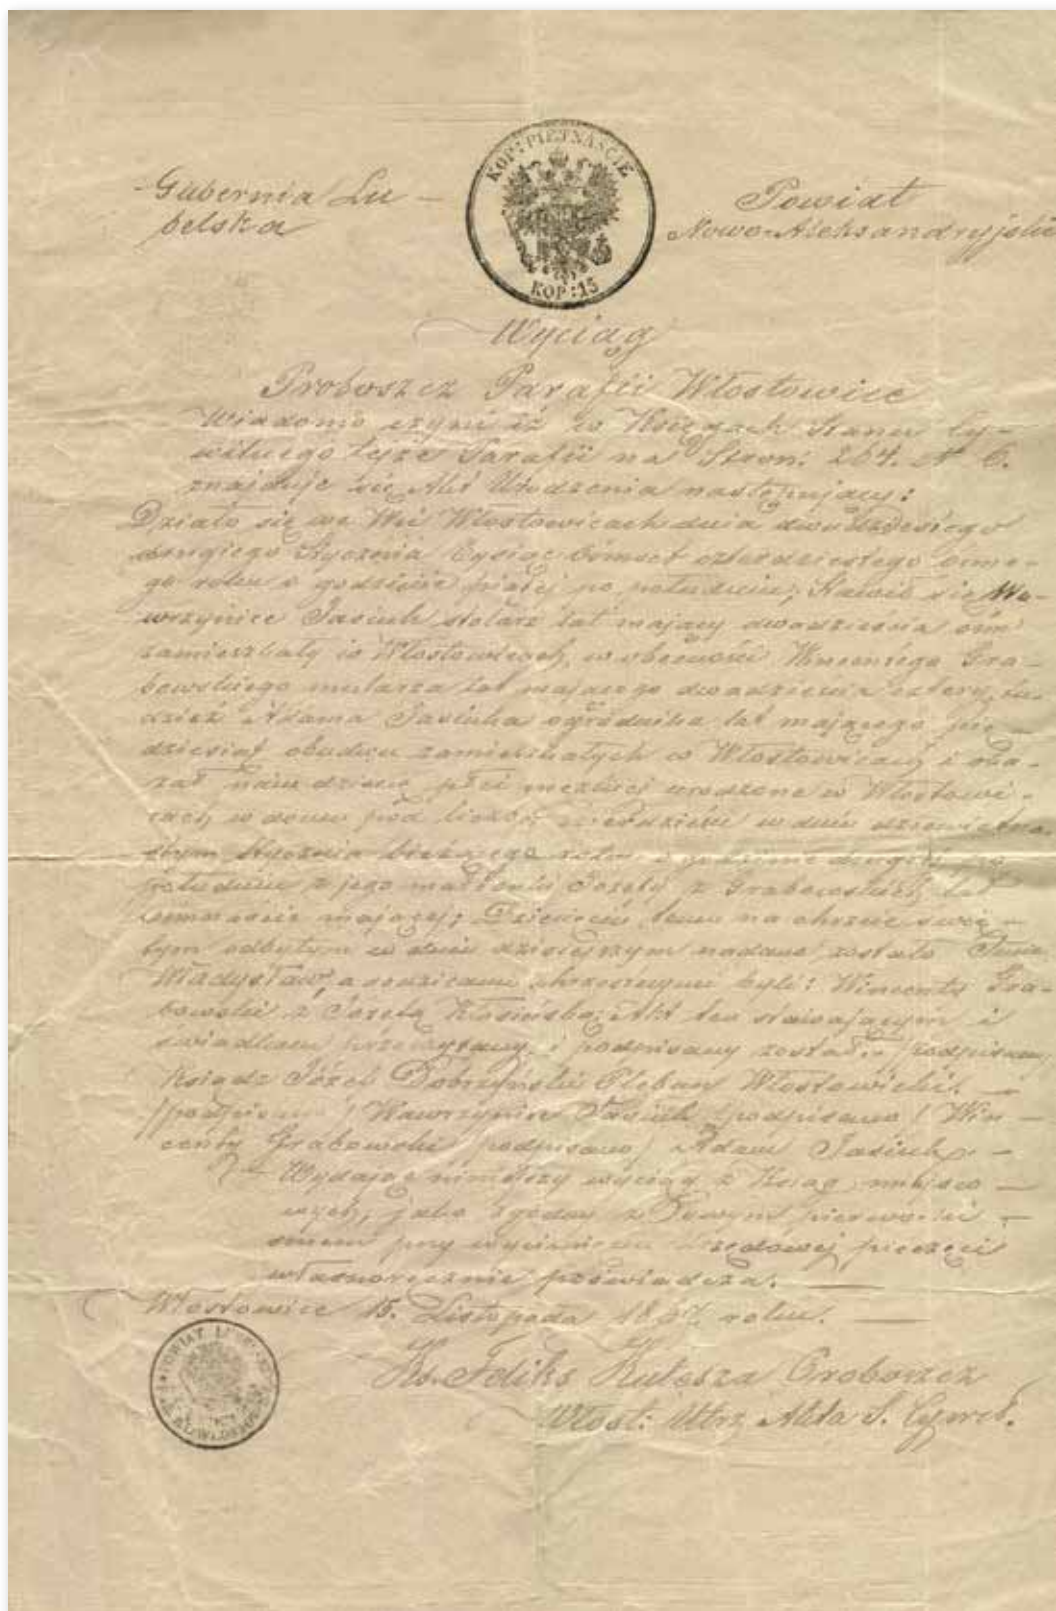 KOP: PIĘTNAŚCIE
KOP: 15
Gubernia Lu-
belska
Powiat
Nowo-Aleksandryjski
Wyciąg
Proboszcz Parafii Włostowice
Wiadomo czyni iż w Księgach Stanu Cy-
wilnego tejże Parafii na Stron: 264. N 6.
znajduje się Akt Urodzenia następujący:
Działo się we Wsi Włostowicach dnia dwudziestego
drugiego Stycznia Tysiąc ośmset czterdziestego ósme-
go roku o godzinie piątej po południu; Stawił się Wa-
wrzyniec Jasiuk stolarz lat mający dwadzieścia ośm
zamieszkały w Włostowicach, w obecności Wincentego Gra-
bowskiego mularza lat mającego dwadzieścia cztery, tu-
dzież Adama Jasiuka ogrodnika lat mającego pię-
dziesiąt obudwu zamieszkałych w Włostowicach i oka-
zał nam dziecię płci męzkiej urodzone w Włostowi-
cach w domu pod liczbą w dniu dziewiętna-
stym Stycznia bieżącego roku o godzinie drugiej po
południu z jego małżonki Józefy z Grabowskich lat
mającej; Dziecięciu temu na chrzcie świę-
tym odbytym w dniu dzisiejszym nadane zostało Imie
Władysław, a rodzicami chrzestnymi byli: Wincenty Gra-
bowski z Józefą Kłosińską. Akt ten stawającym i
świadkom przeczytany i podpisany został. podpisany
Ksiądz Józef Dobrzyński Pleban Włostowicki. —
/podpisano/ Wawrzyniec Jasiuk /podpisano/ Win-
centy Grabowski /podpisano/ Adam Jasiuk. —
Wydając niniejszy wyciąg z Ksiąg miejsco-
wych, jako zgodny z pierwopi-
smem przy wyciśnięciu Urzędowej pieczęci
własnoręcznie poświadcza. —
Włostowice 15. Listopada 1867 roku. —
Ks. Feliks Kulesza Proboszcz
Włost: Utrz. Akta S. Cywil.
POWIAT